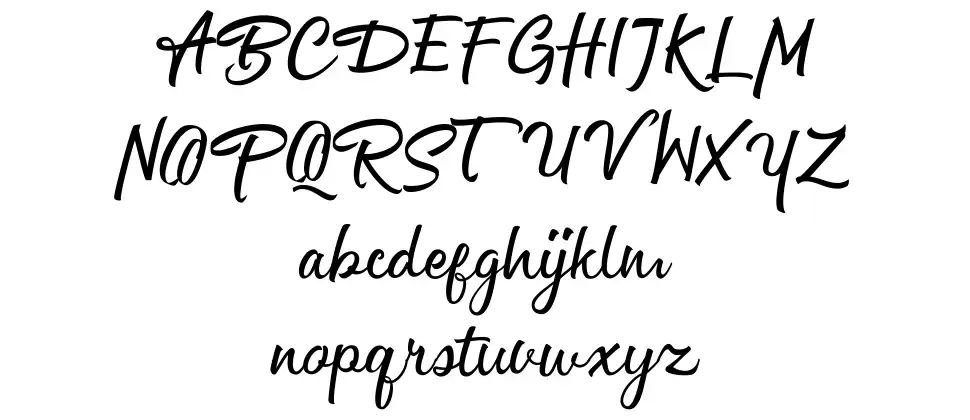 ABCDEFGHIJKLM
NOPQRSTUVWXYZ
abcdefghijklm
nopqrstuvwxyz